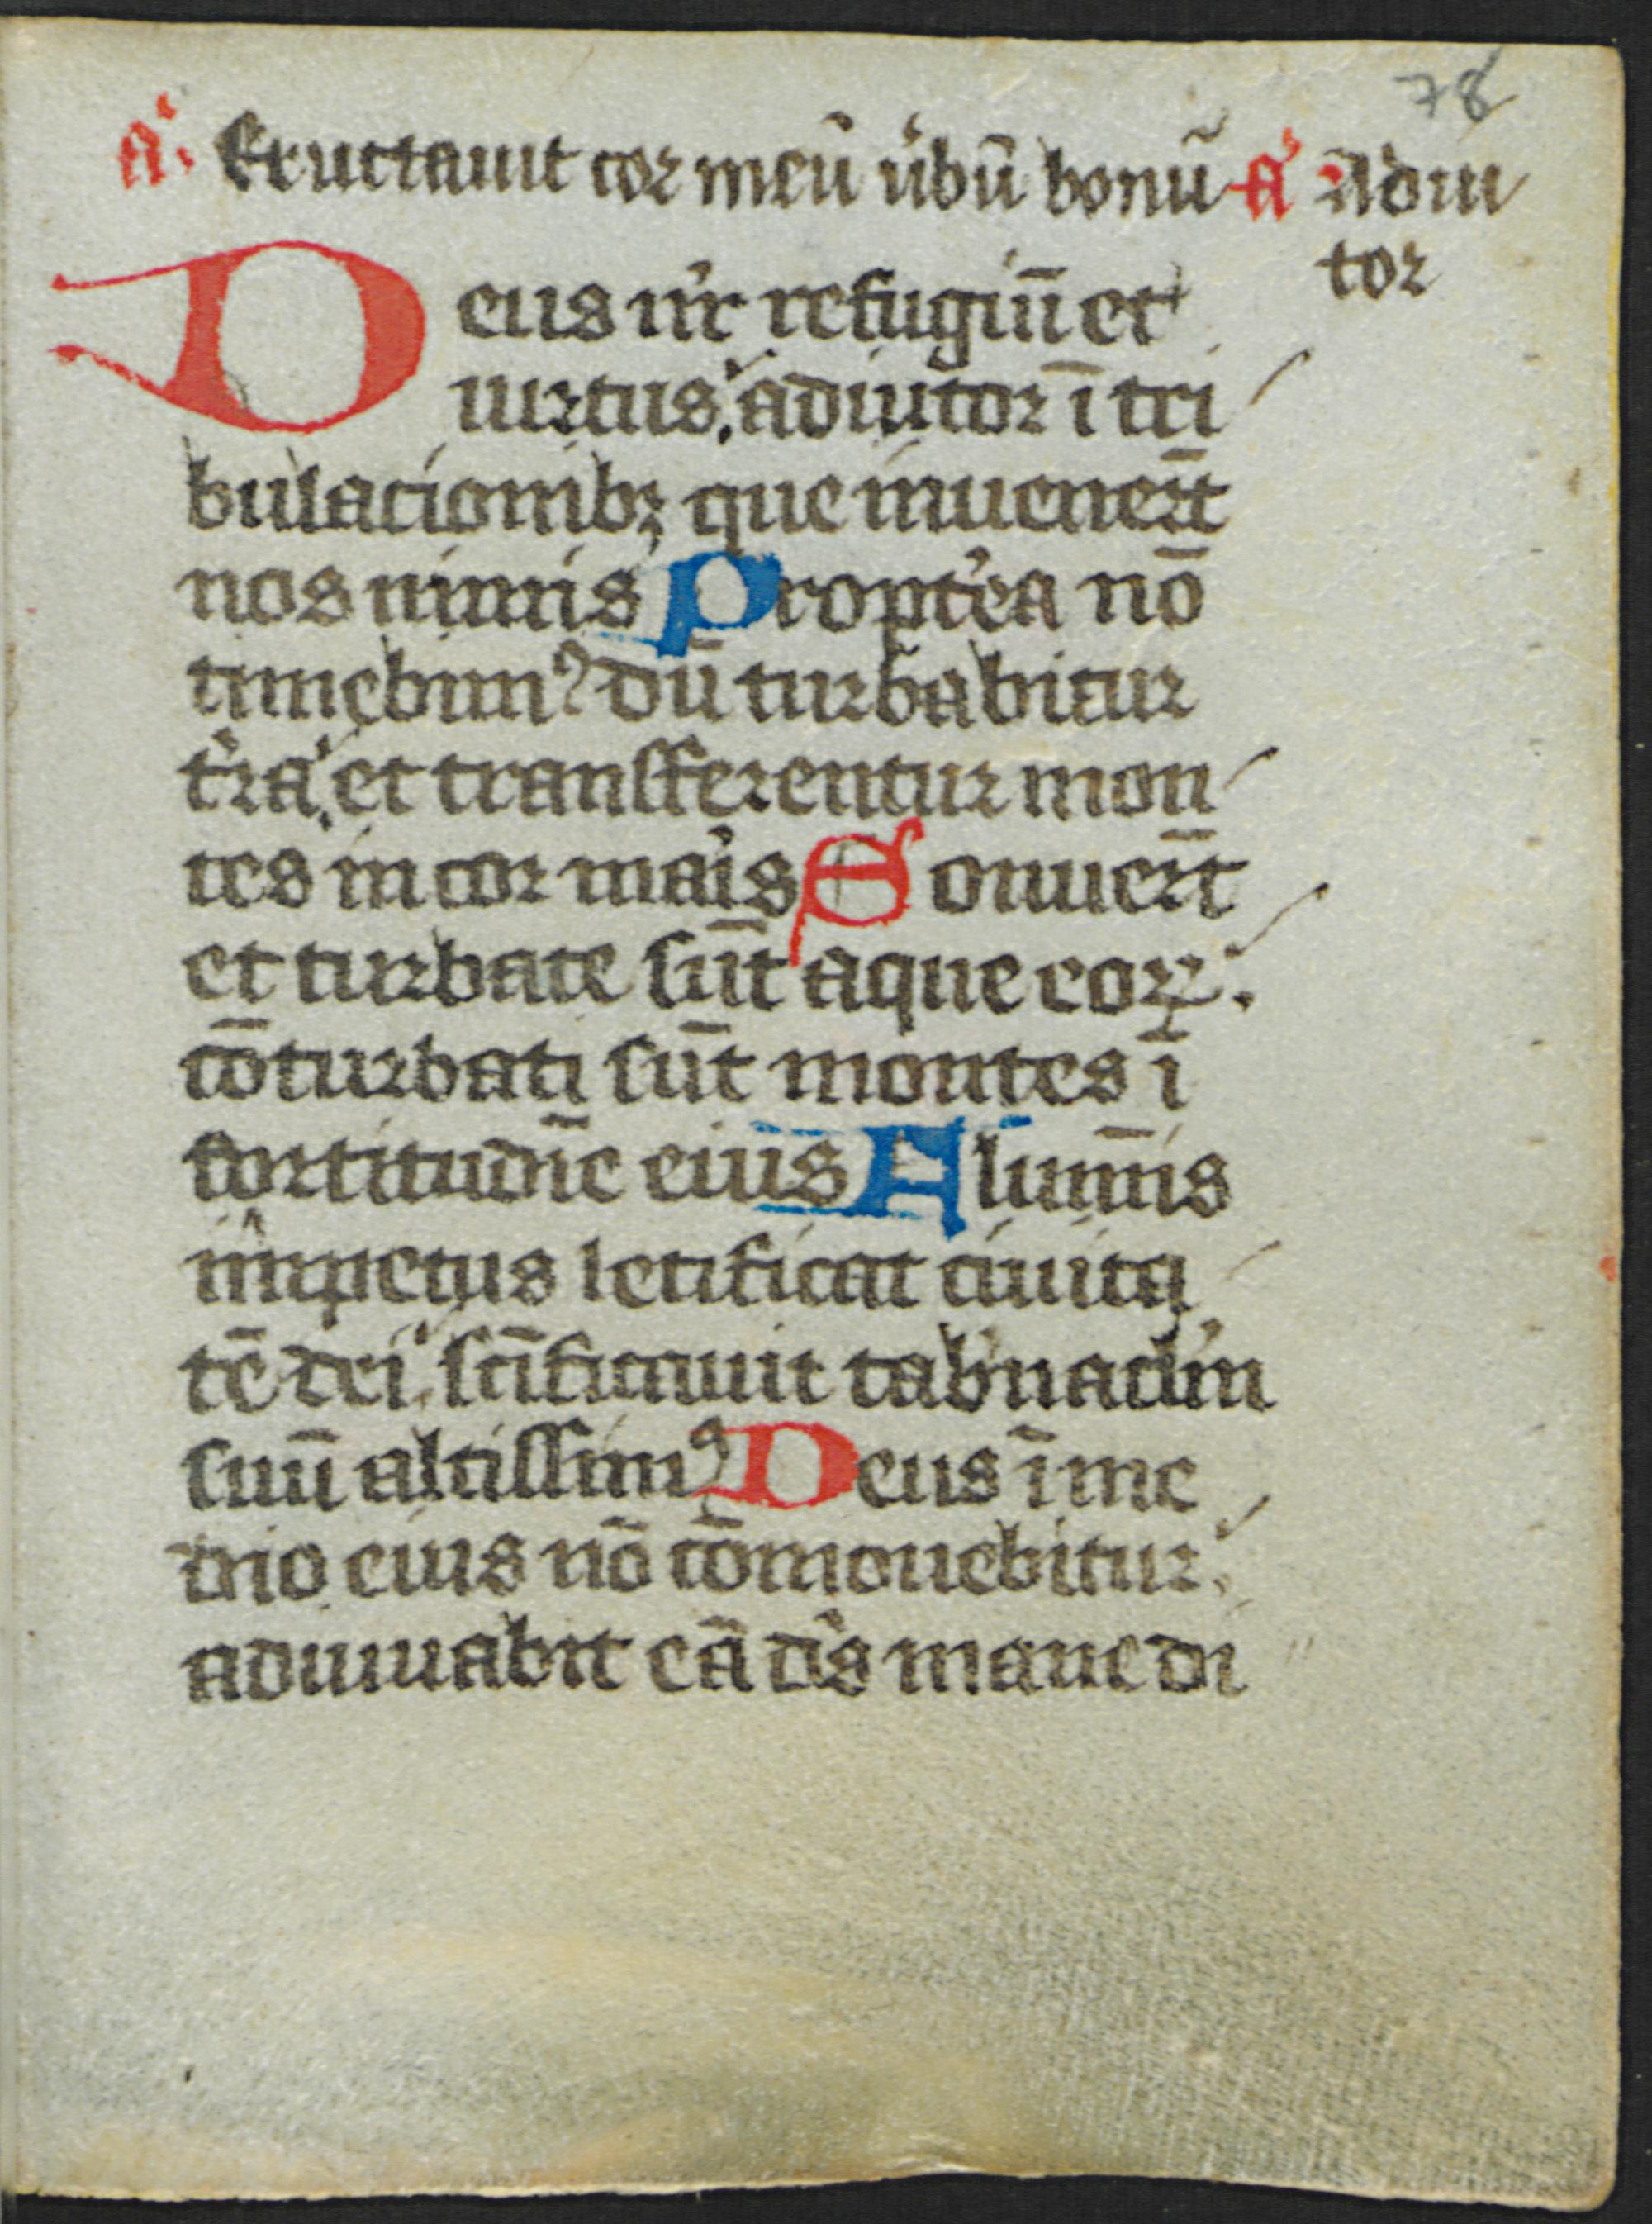 78
a᷒. Eructauit cor meū ůbū bonū a᷒ Adiu
tor
Deus nr̄ refugiū et
uirtus. adiutor ī tri
bulacionibꝫ que inuenert̄
nos nimis Propt'ea nō
timebimꝰ dū turbabitur
t'ra. et transferentur mon
tes in cor mar̄is Sonuert̄
et turbate sūt aque eoꝝ.
cōturbati sūt montes ī
fortitudīe eius Flumīs
impetus letificat ciuita
tē dei. sc̄ificauit tab'nacl'm
suū altissimꝰ Deus ī me
dio eius nō cōmouebitur.
adiuuabit eā ds̄ mane di